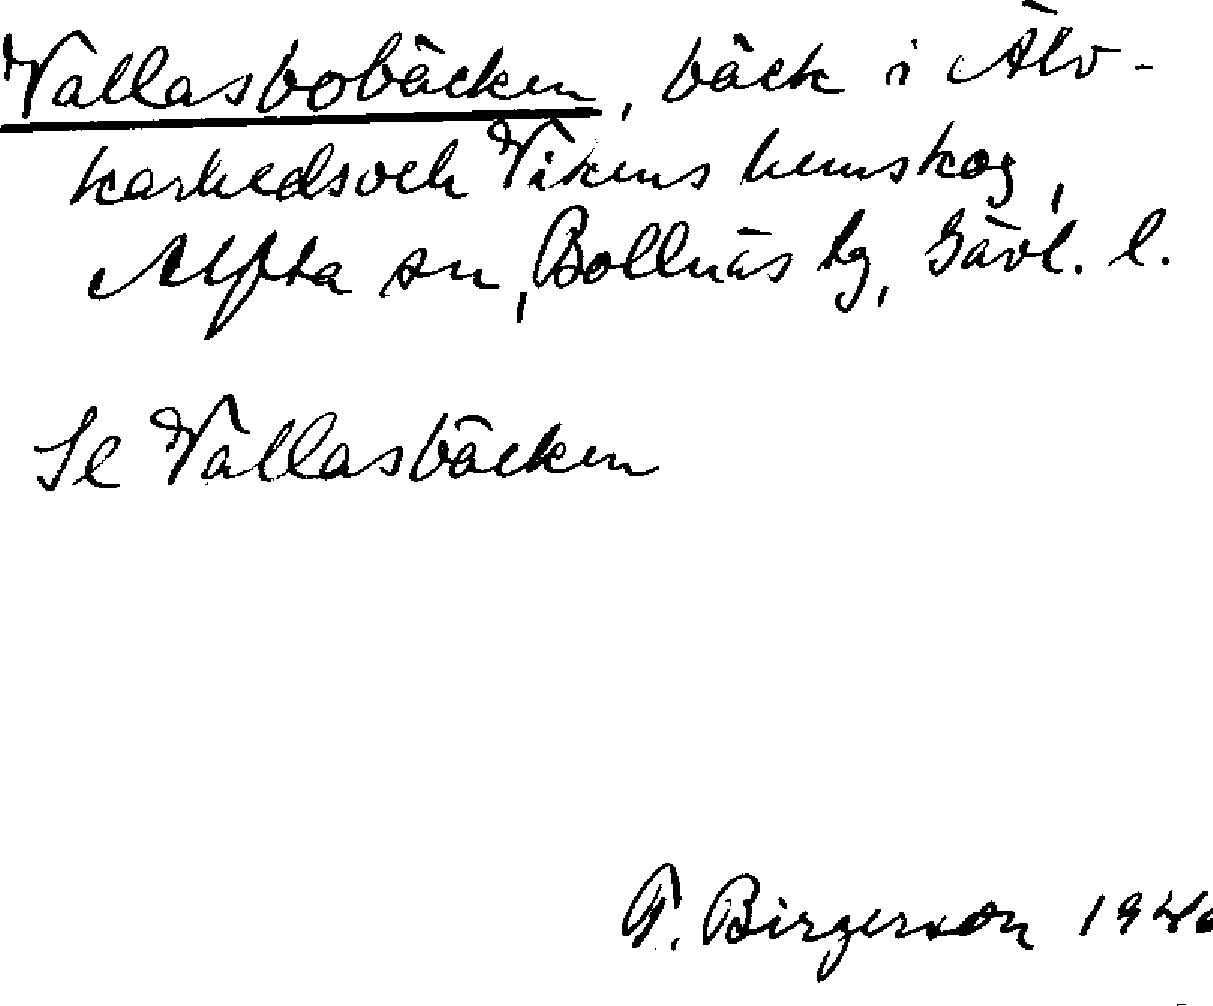 Vallasbobäcken, bäck i Älv-
karhedsoch Vikens hemskog,
Alfta sn, Bollnäs tg, Gävl. l.
Se Vallasbäcken
F. Birgerson 1946